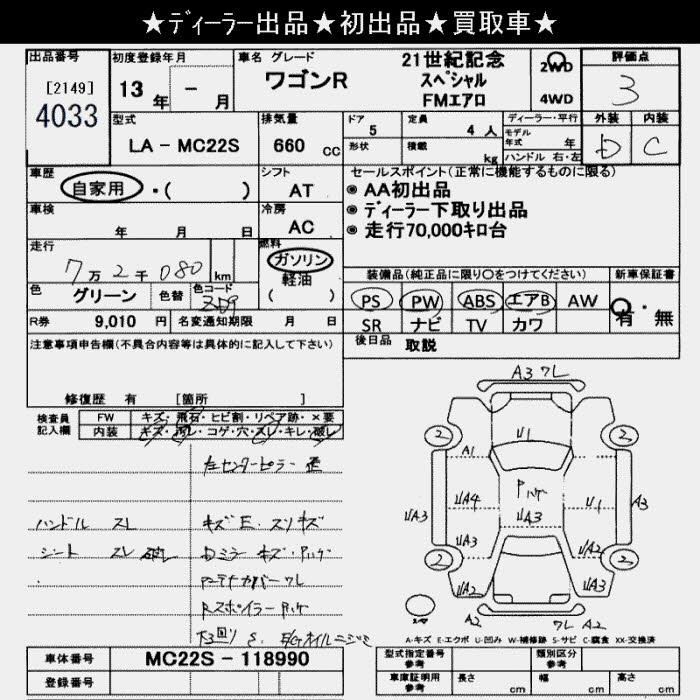 ★ディーラー出品★初出品★買取車★
出品番号
[2149]
4033
初度登録年月
13年 - 月
車名 グレード
ワゴンR
21世紀記念
スペシャル
FMエアロ
2WD
4WD
評価点
3
型式
LA - MC22S
排気量
660 cc
ドア
5
形状
定員
4 人
積載
kg
ディーラー・平行
モデル
年式 年
ハンドル 右・左
外装
D
内装
C
車歴
自家用・( )
シフト
AT
セールスポイント(正常に機能するものに限る)
◉ AA初出品
◉ ディーラー下取り出品
◉ 走行70,000キロ台
車検
年 月 日
冷房
AC
走行
7万2千080 km
燃料
ガソリン
軽油
( )
色
グリーン
色替
色コード
装備品(純正品に限り〇をつけてください)
新車保証書
PS PW ABS エアB AW
有・無
SR ナビ TV カワ
R券 9,010 円
名変通知期限 月 日
後日品 取説
注意事項申告欄(不具合内容等は具体的に記入して下さい)
修復歴 有 [箇所 ]
検査員
記入欄
FW キズ・飛石・ヒビ割・リペア跡・×要
内装 キズ・汚レ・コゲ・穴・スレ・キレ・破レ
左センターピラー 歪
ハンドル スレ
キズE. スリキズ
シート スレ 破レ
Dミラー キズ・ハゲ
Rスポイラー ハゲ
下回り S. E/Gオイルニジミ
A3 ワレ
2
2
A1
U1
UA4
Pハゲ
UA3
UA3
U1
A3
UA3
UA2
UA3
2
2
UA2
A2
ワレ A2
A-キズ E-エクボ U-凹み W-補修跡 S-サビ C-腐食 XX-交換済
車体番号
MC22S - 118990
登録番号
型式指定番号
参考
類別区分
参考
車庫証明用
参考
長さ cm
幅 cm
高さ cm